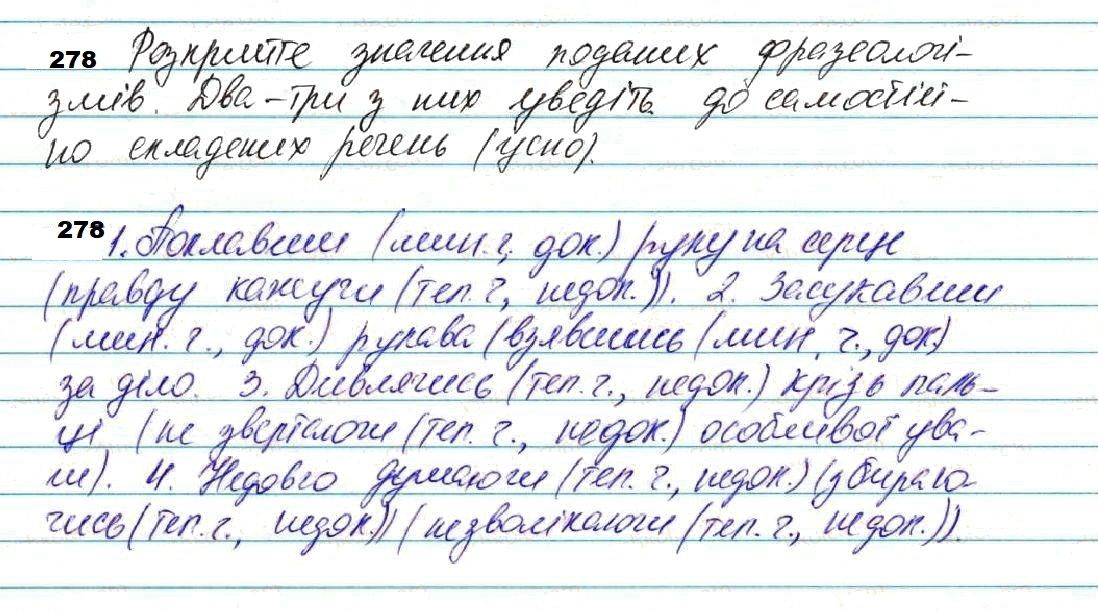 278 Розкрийте значення поданих фразеологі-
змів. Два-три з них уведіть до самостій-
но складених речень (усно).
278 1. Поклавши (мин. ч., док.) руку на серце
(правду кажучи (теп. ч., недок.)). 2. Засукавши
(мин. ч., док.) рукава (взявшись (мин. ч., док)
за діло. 3. Дивлячись (теп. ч., недок.) крізь паль-
ці (не звертаючи (теп. ч., недок.) особливої ува-
ги). 4. Недовго думаючи (теп. ч., недок.)
чись (теп. ч., недок.)) (незволікаючи (теп. ч., недок.)).